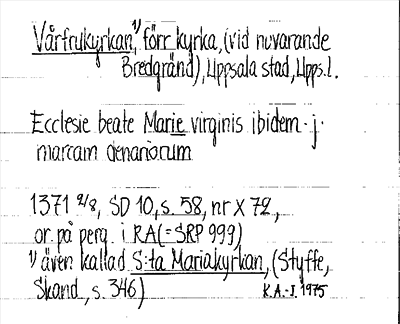 Vårfrukyrkan,¹⁾ förr kyrka, (vid nuvarande
Bredgränd), Uppsala stad, Upps. l.
Ecclesie beate Marie virginis ibidem · j ·
marcam denariorum
1371 2/8, SD 10, s. 58, nr X 72,
or. på perg. i RA (= SRP 999)
¹⁾ även kallad S:ta Mariakyrkan, (Styffe,
Skand., s. 346)
K.A.-J. 1975